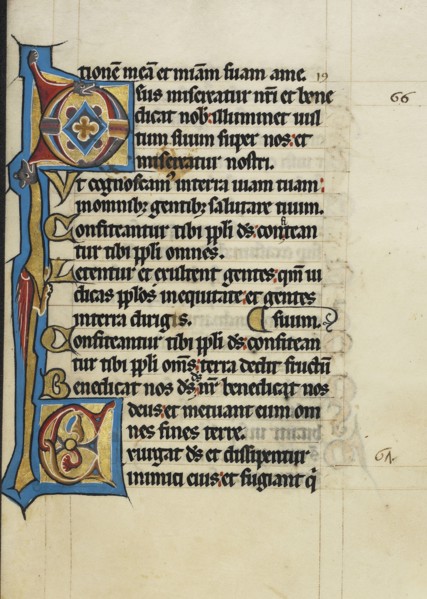 tionē meā et miām suam ame. 19
Eus misereatur nr̄i et bene 66
dicat nob᷒: illuminet uul
tum suum super nos: et
misereatur nostri.
Ut cognoscam᷒ in terra uiam tuam:
in omnib᷒ gentib᷒ salutare tuum.
Confiteantur tibi ppl̄i ds̄: confitean
tur tibi ppl̄i omnes.
Letentur et exultent gentes: qm̄ iu
dicas ppl̄os in equitate: et gentes
in terra dirigis. suum.
Confiteantur tibi ppl̄i ds̄: confitean
tur tibi ppl̄i om̄s: terra dedit fructū
Benedicat nos ds̄ ds̄ nr̄ benedicat nos
deus: et metuant eum om
nes fines terre.
Exurgat ds̄ et dissipentur 67
inimici eius: et fugiant q̄